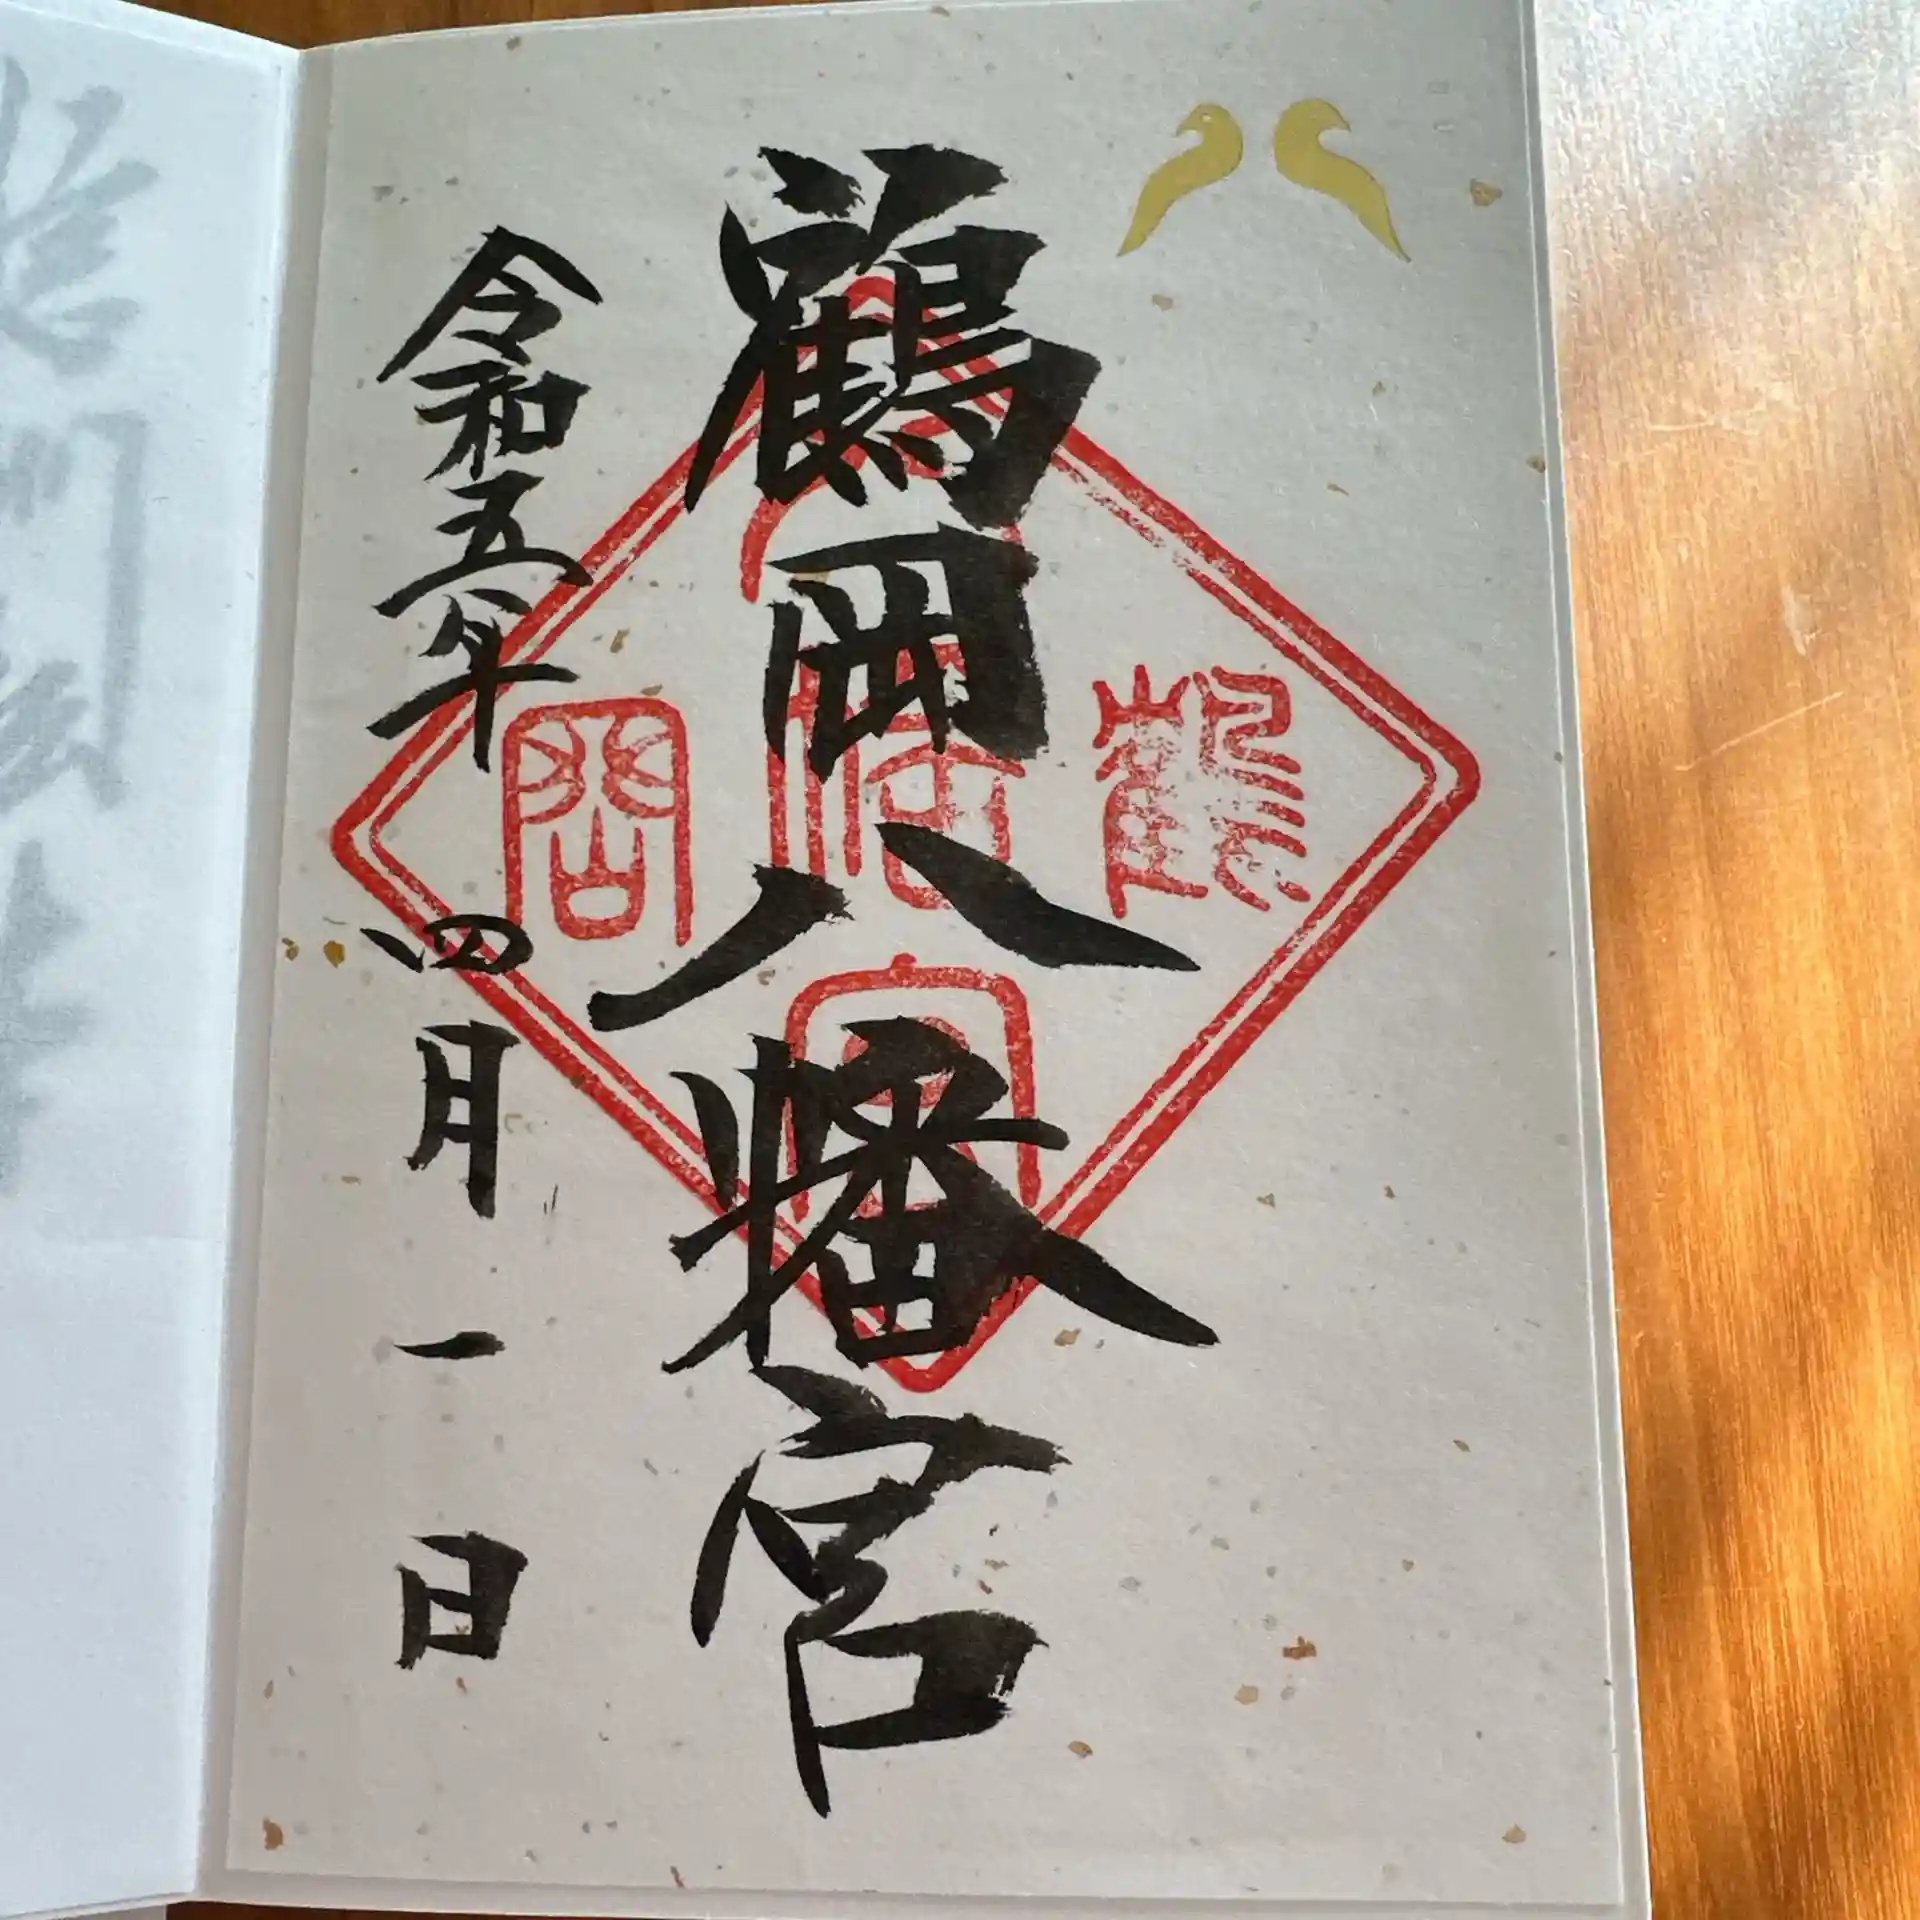 鶴岡八幡宮
令和五年四月一日
鶴
八幡
岡
宮